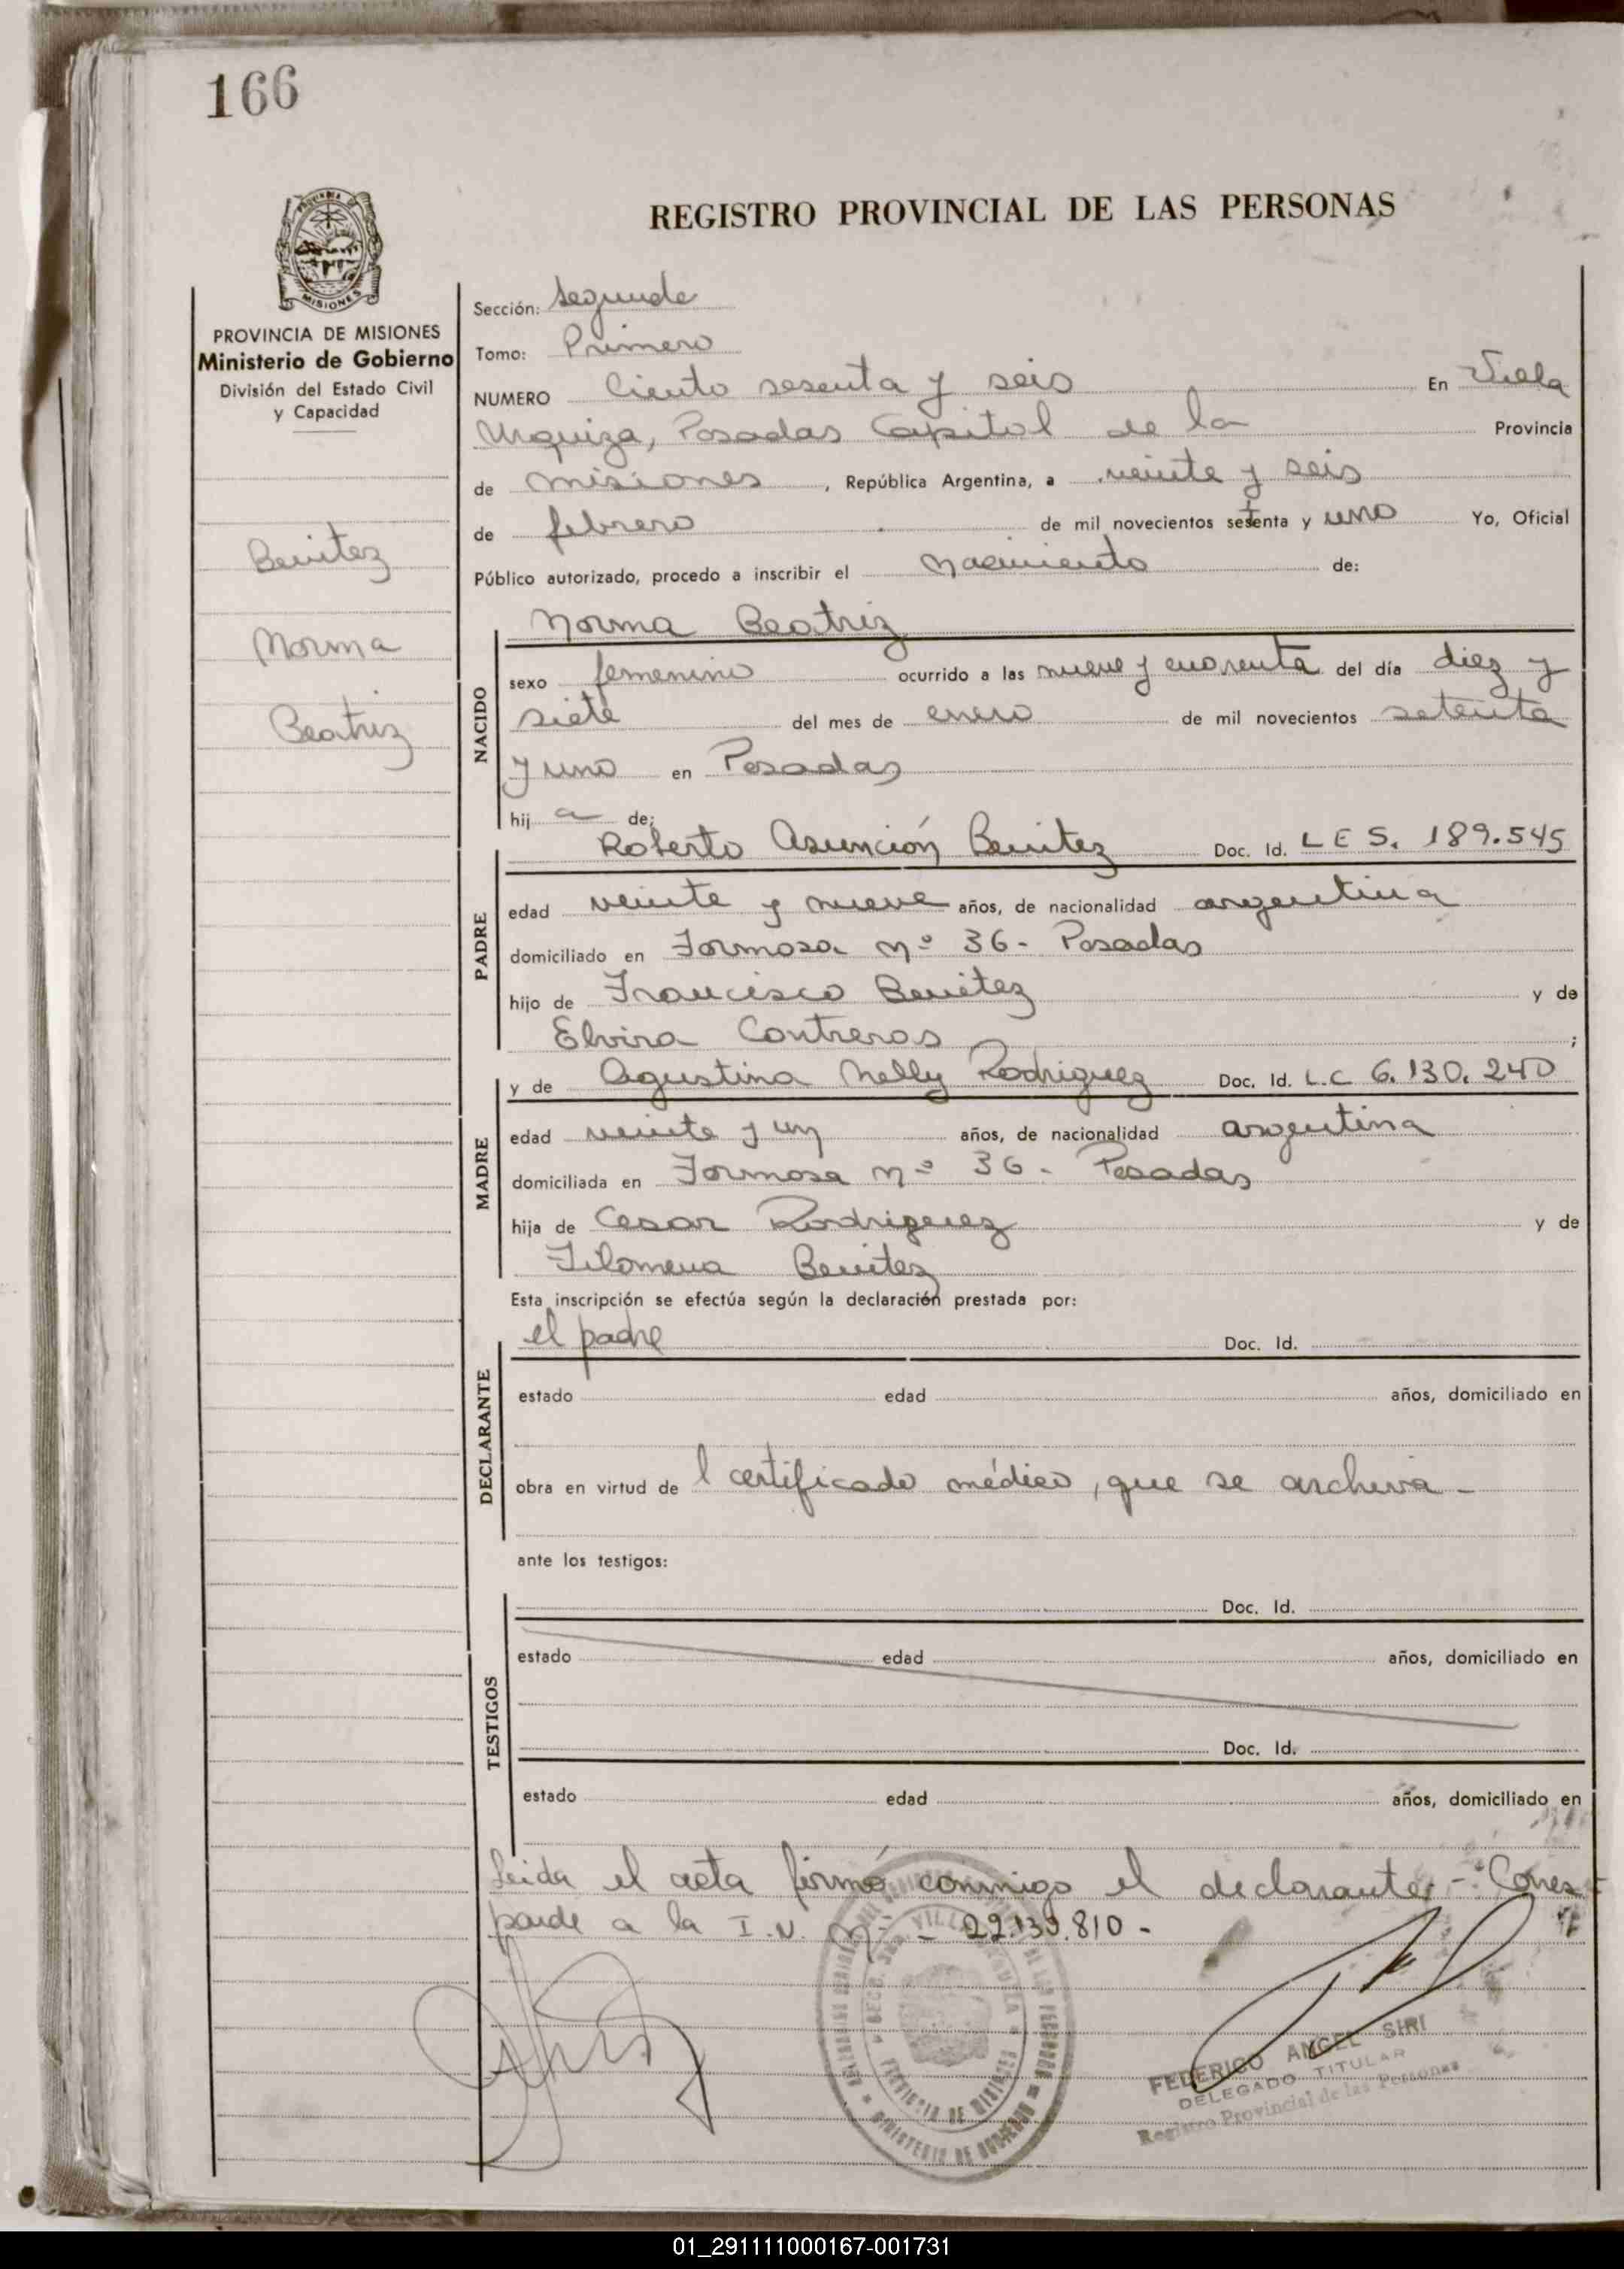 166
REGISTRO PROVINCIAL DE LAS PERSONAS
MISIONES
PROVINCIA DE MISIONES
Ministerio de Gobierno
División del Estado Civil
y Capacidad
Benitez
Norma
Beatriz
Sección: Segunda
Tomo: Primero
NUMERO Ciento sesenta y seis En Villa
Urquiza, Posadas Capital de la Provincia
de Misiones, República Argentina, a veinte y seis
de febrero de mil novecientos setenta y uno Yo, Oficial
Público autorizado, procedo a inscribir el nacimiento de:
NACIDO
Norma Beatriz
sexo femenino ocurrido a las nueve y cuarenta del día diez y
siete del mes de enero de mil novecientos setenta
y uno en Posadas
hij a de:
PADRE
Roberto Asunción Benitez Doc. Id. L E S. 189.545
edad veinte y nueve años, de nacionalidad argentina
domiciliado en Formosa nº 36 - Posadas
hijo de Francisco Benitez y de
Elvira Contreras ;
MADRE
y de Agustina Nelly Rodriguez Doc. Id. L.C 6.130.240
edad veinte y un años, de nacionalidad argentina
domiciliada en Formosa nº 36 - Posadas
hija de Cesar Rodriguez y de
Filomena Benitez
Esta inscripción se efectúa según la declaración prestada por:
DECLARANTE
el padre Doc. Id.
estado edad años, domiciliado en
obra en virtud de l certificado médico, que se archiva -
ante los testigos:
TESTIGOS
Doc. Id.
estado edad años, domiciliado en
Doc. Id.
estado edad años, domiciliado en
Leida el acta firmó conmigo el declarante, - Corres
ponde a la I.N. nº - 22.139.810 -
VILLA
PROVINCIA DE MISIONES
MINISTERIO DE GOBIERNO
FEDERICO ANGEL SIRI
DELEGADO TITULAR
Registro Provincial de las Personas
01_291111000167-001731